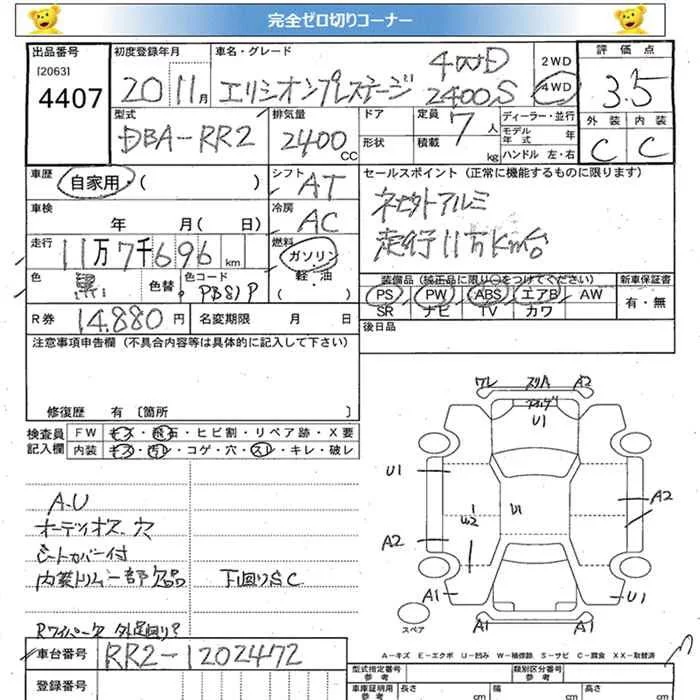 完全ゼロ切りコーナー
出品番号 初度登録年月 車名・グレード 評価点
[2063]
4407
20 11月 エリシオンプレステージ 4WD 2400S
2WD
4WD
3.5
外装 内装
C C
型式 排気量 ドア 定員 ディーラー・並行
DBA-RR2 2400CC 形状 積載 7人 kg
モデル年式 年
ハンドル 左・右
車歴 シフト セールスポイント (正常に機能するものに限ります)
自家用・( ) AT
車検 冷房 社外アルミ
年 月(日) AC 走行11万km台
走行 燃料
11万7千696km ガソリン
軽・油
色 黒 色替 色コード PB81P
装備品(純正品に限り○をつけてください) 新車保証書
PS PW ABS エアB AW 有・無
SR ナビ TV カワ
R券 14,880円 名変期限 月 日 後日品
注意事項申告欄 (不具合内容等は具体的に記入して下さい)
修復歴 有〔箇所 〕
検査員記入欄
FW キズ・飛石・ヒビ割・リペア跡・X要
内装 キズ・汚レ・コゲ・穴・スレ・キレ・破レ
A.U
オーディオス、穴
シートカバー付
内装トリム一部欠品 下回りSC
Rワイパーク 外足回り?
車台番号 RR2-1202472
登録番号
ワレ スリA A2
U1
U1
A2
U2
U1
A2
A1 U1
A1 A1
スペア
A-キズ E-エクボ U-凹み W-補修跡 S-サビ C-腐食 XX-取替済
型式指定番号 参考 類別区分番号 参考
車庫証明用 参考 長さ cm 幅 cm 高さ